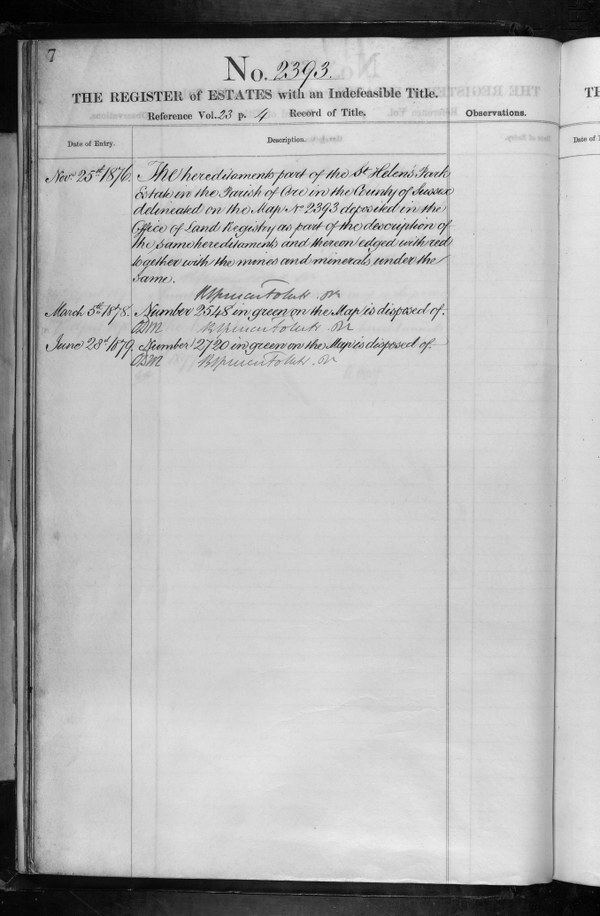 7
No. 2393.
THE REGISTER of ESTATES with an Indefeasible Title.
Reference Vol. 23 p. 4 Record of Title.
Observations.
Date of Entry.
Description.
Novr 25th 1876. The hereditaments part of the St Helen's Park
Estate in the Parish of Ore in the County of Sussex
delineated on the Map No 2393 deposited in the
Office of Land Registry as part of the description of
the same hereditaments and thereon edged with red
together with the mines and minerals under the
same.
March 5th 1878. Number 2548 in green on the Map is disposed of.
June 28th 1879. Number 2720 in green on the Map is disposed of.
TH
Date of